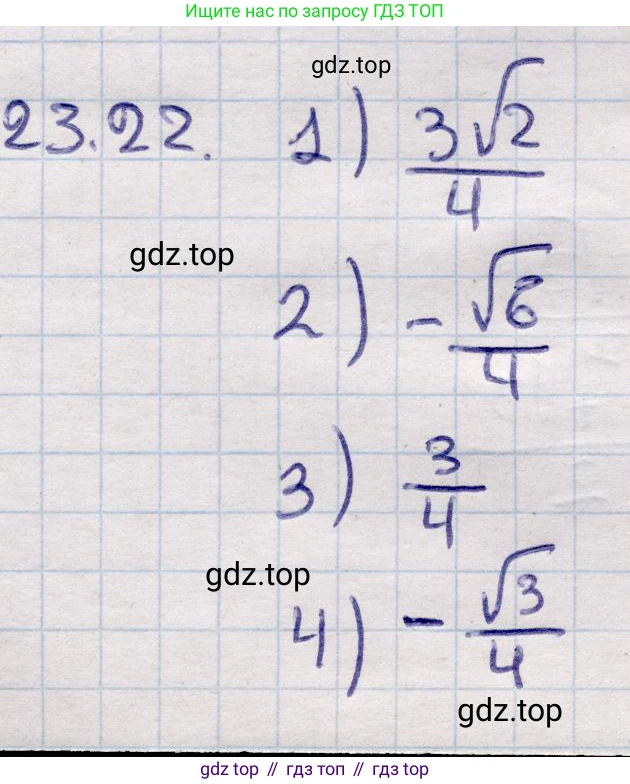 Ищите нас по запросу ГДЗ ТОП
gdz.top
23.22. 1) 3√2/4
gdz.top
2) -√6/4
3) 3/4
gdz.top
4) -√3/4
gdz.top
gdz top // гдз топ // gdz top